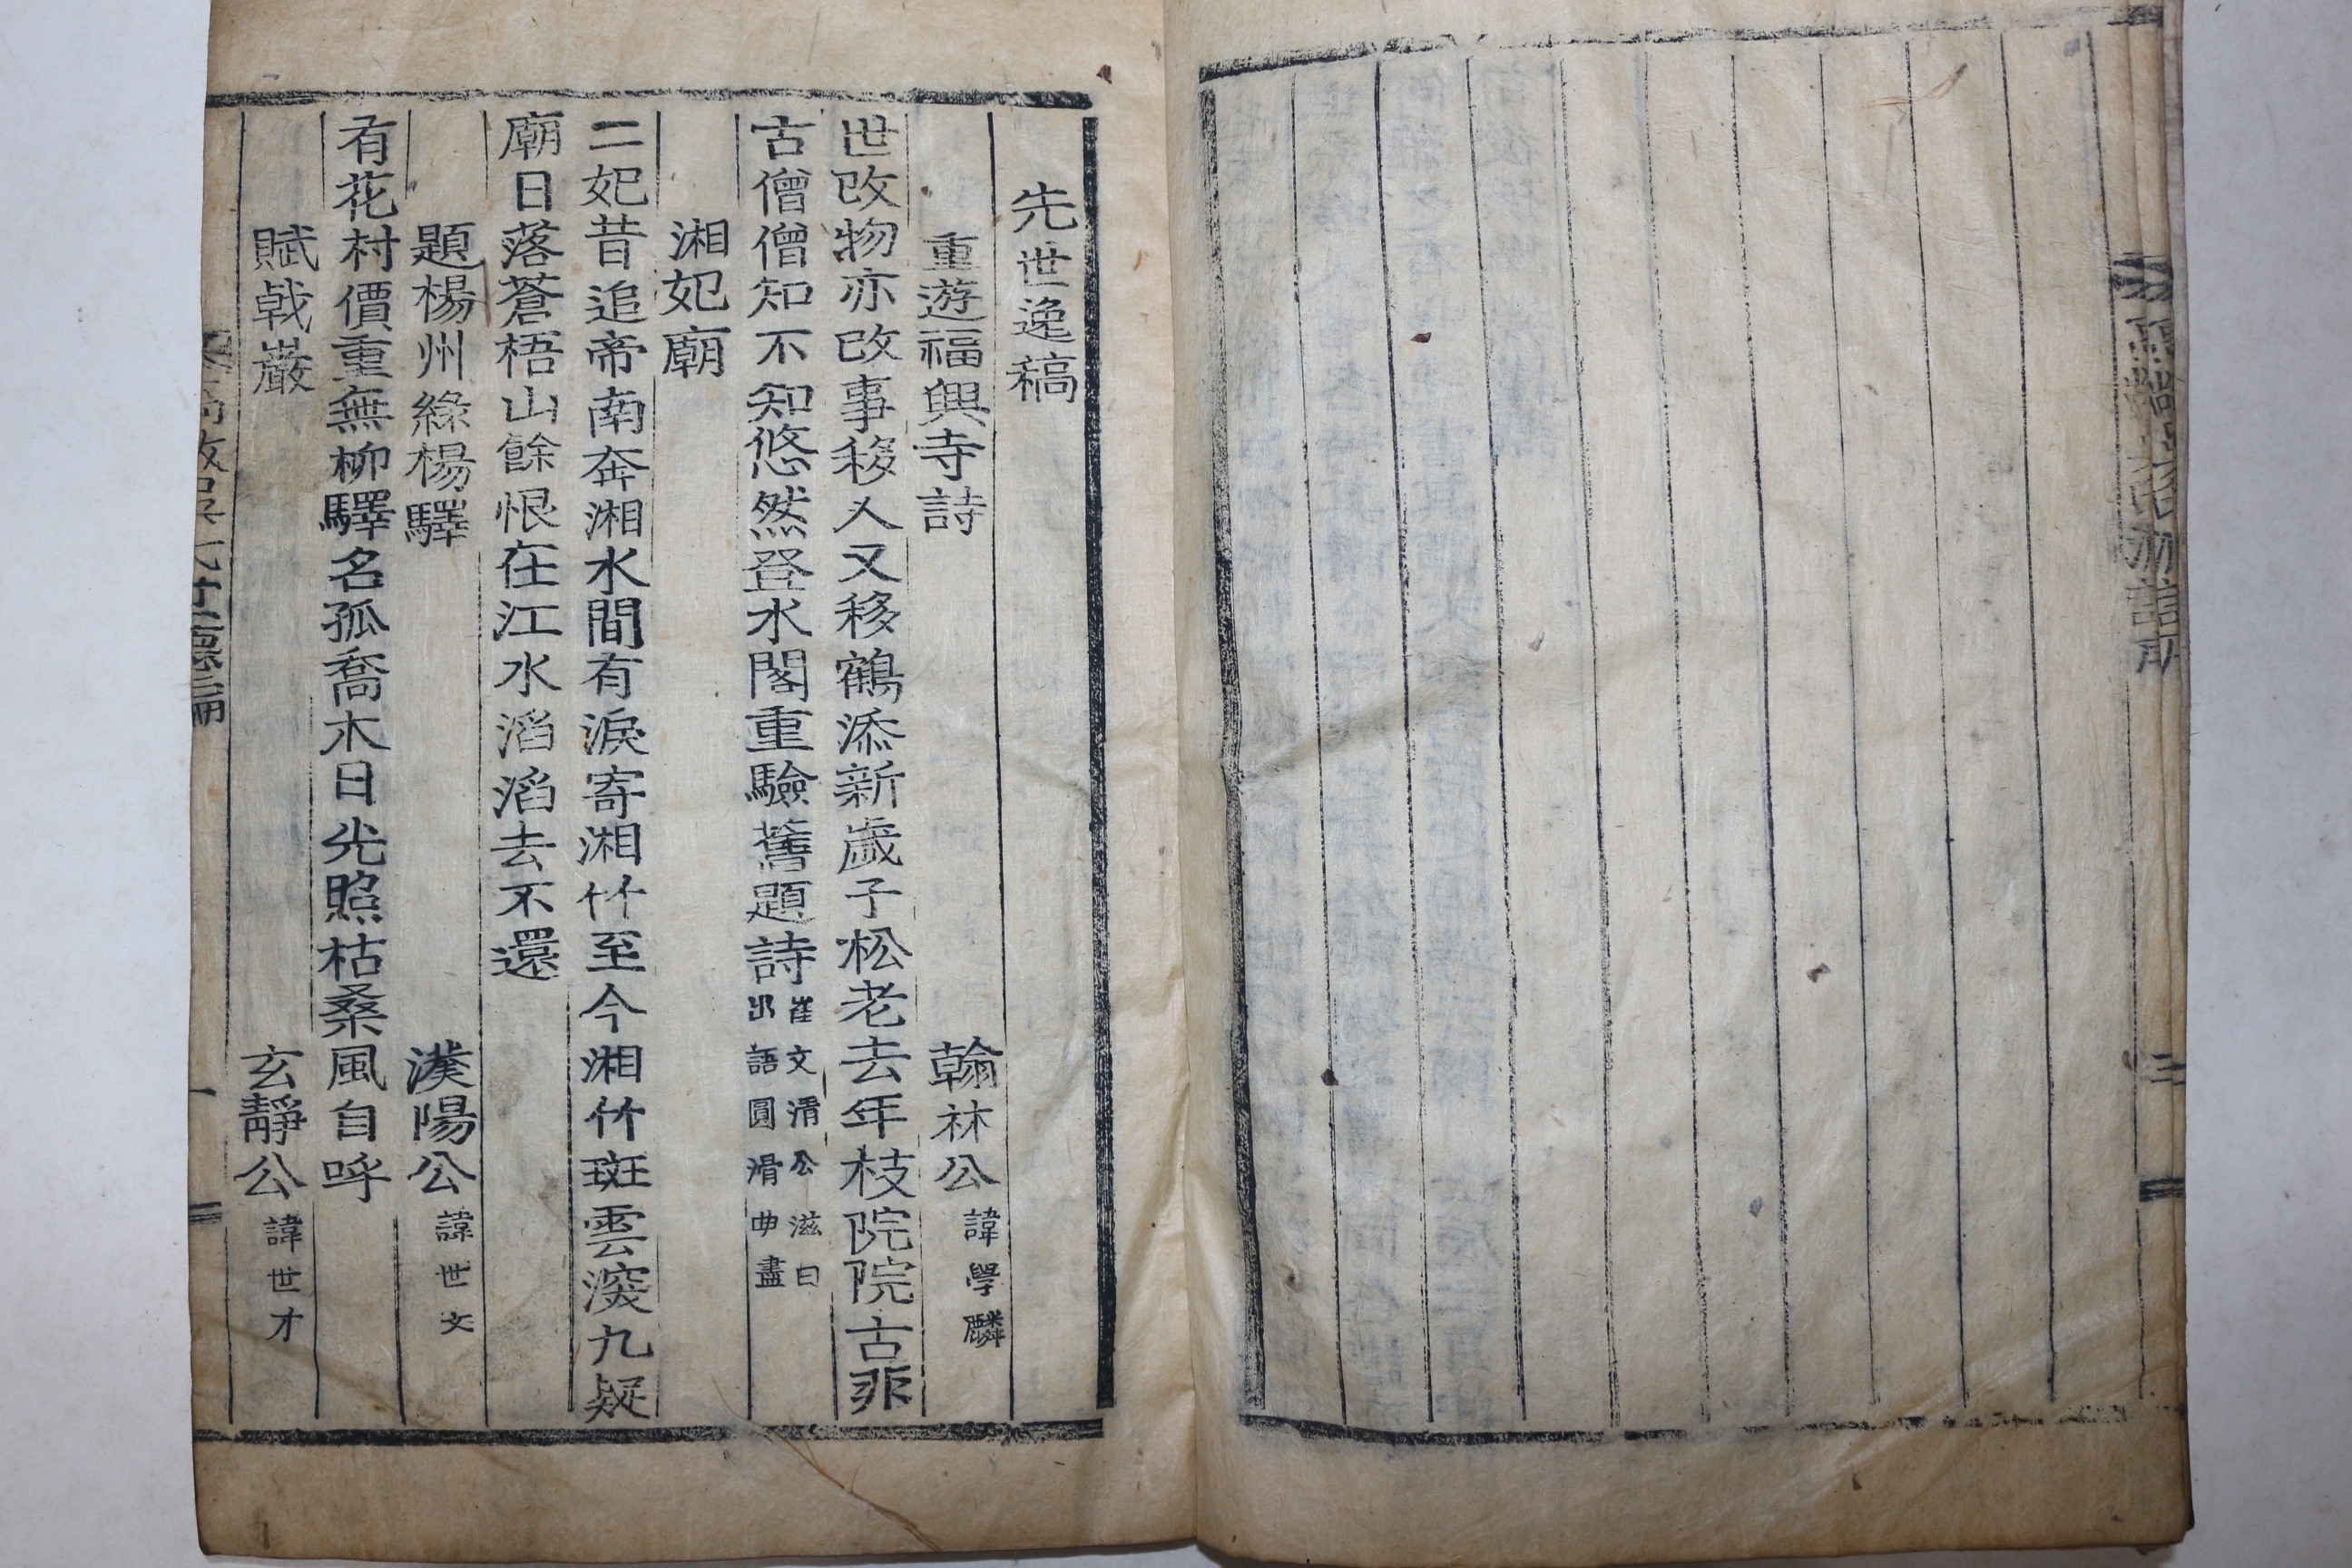 先世逸稿
重遊福興寺詩 翰林公諱學麟
世改物亦改事移人又移鶴添新歲子松老去年枝院院古非
古僧僧知不知悠然登水閣重驗舊題詩崔文淸公滋曰出語圓滑曲盡
湘妃廟
二妃昔追帝南奔湘水間有淚寄湘竹至今湘竹斑雲深九疑
廟日落蒼梧山餘恨在江水滔滔去不還
題楊州綠楊驛 漢陽公諱世文
有花村價重無柳驛名孤喬木日光照枯桑風自呼
賦戟巖 玄靜公諱世才